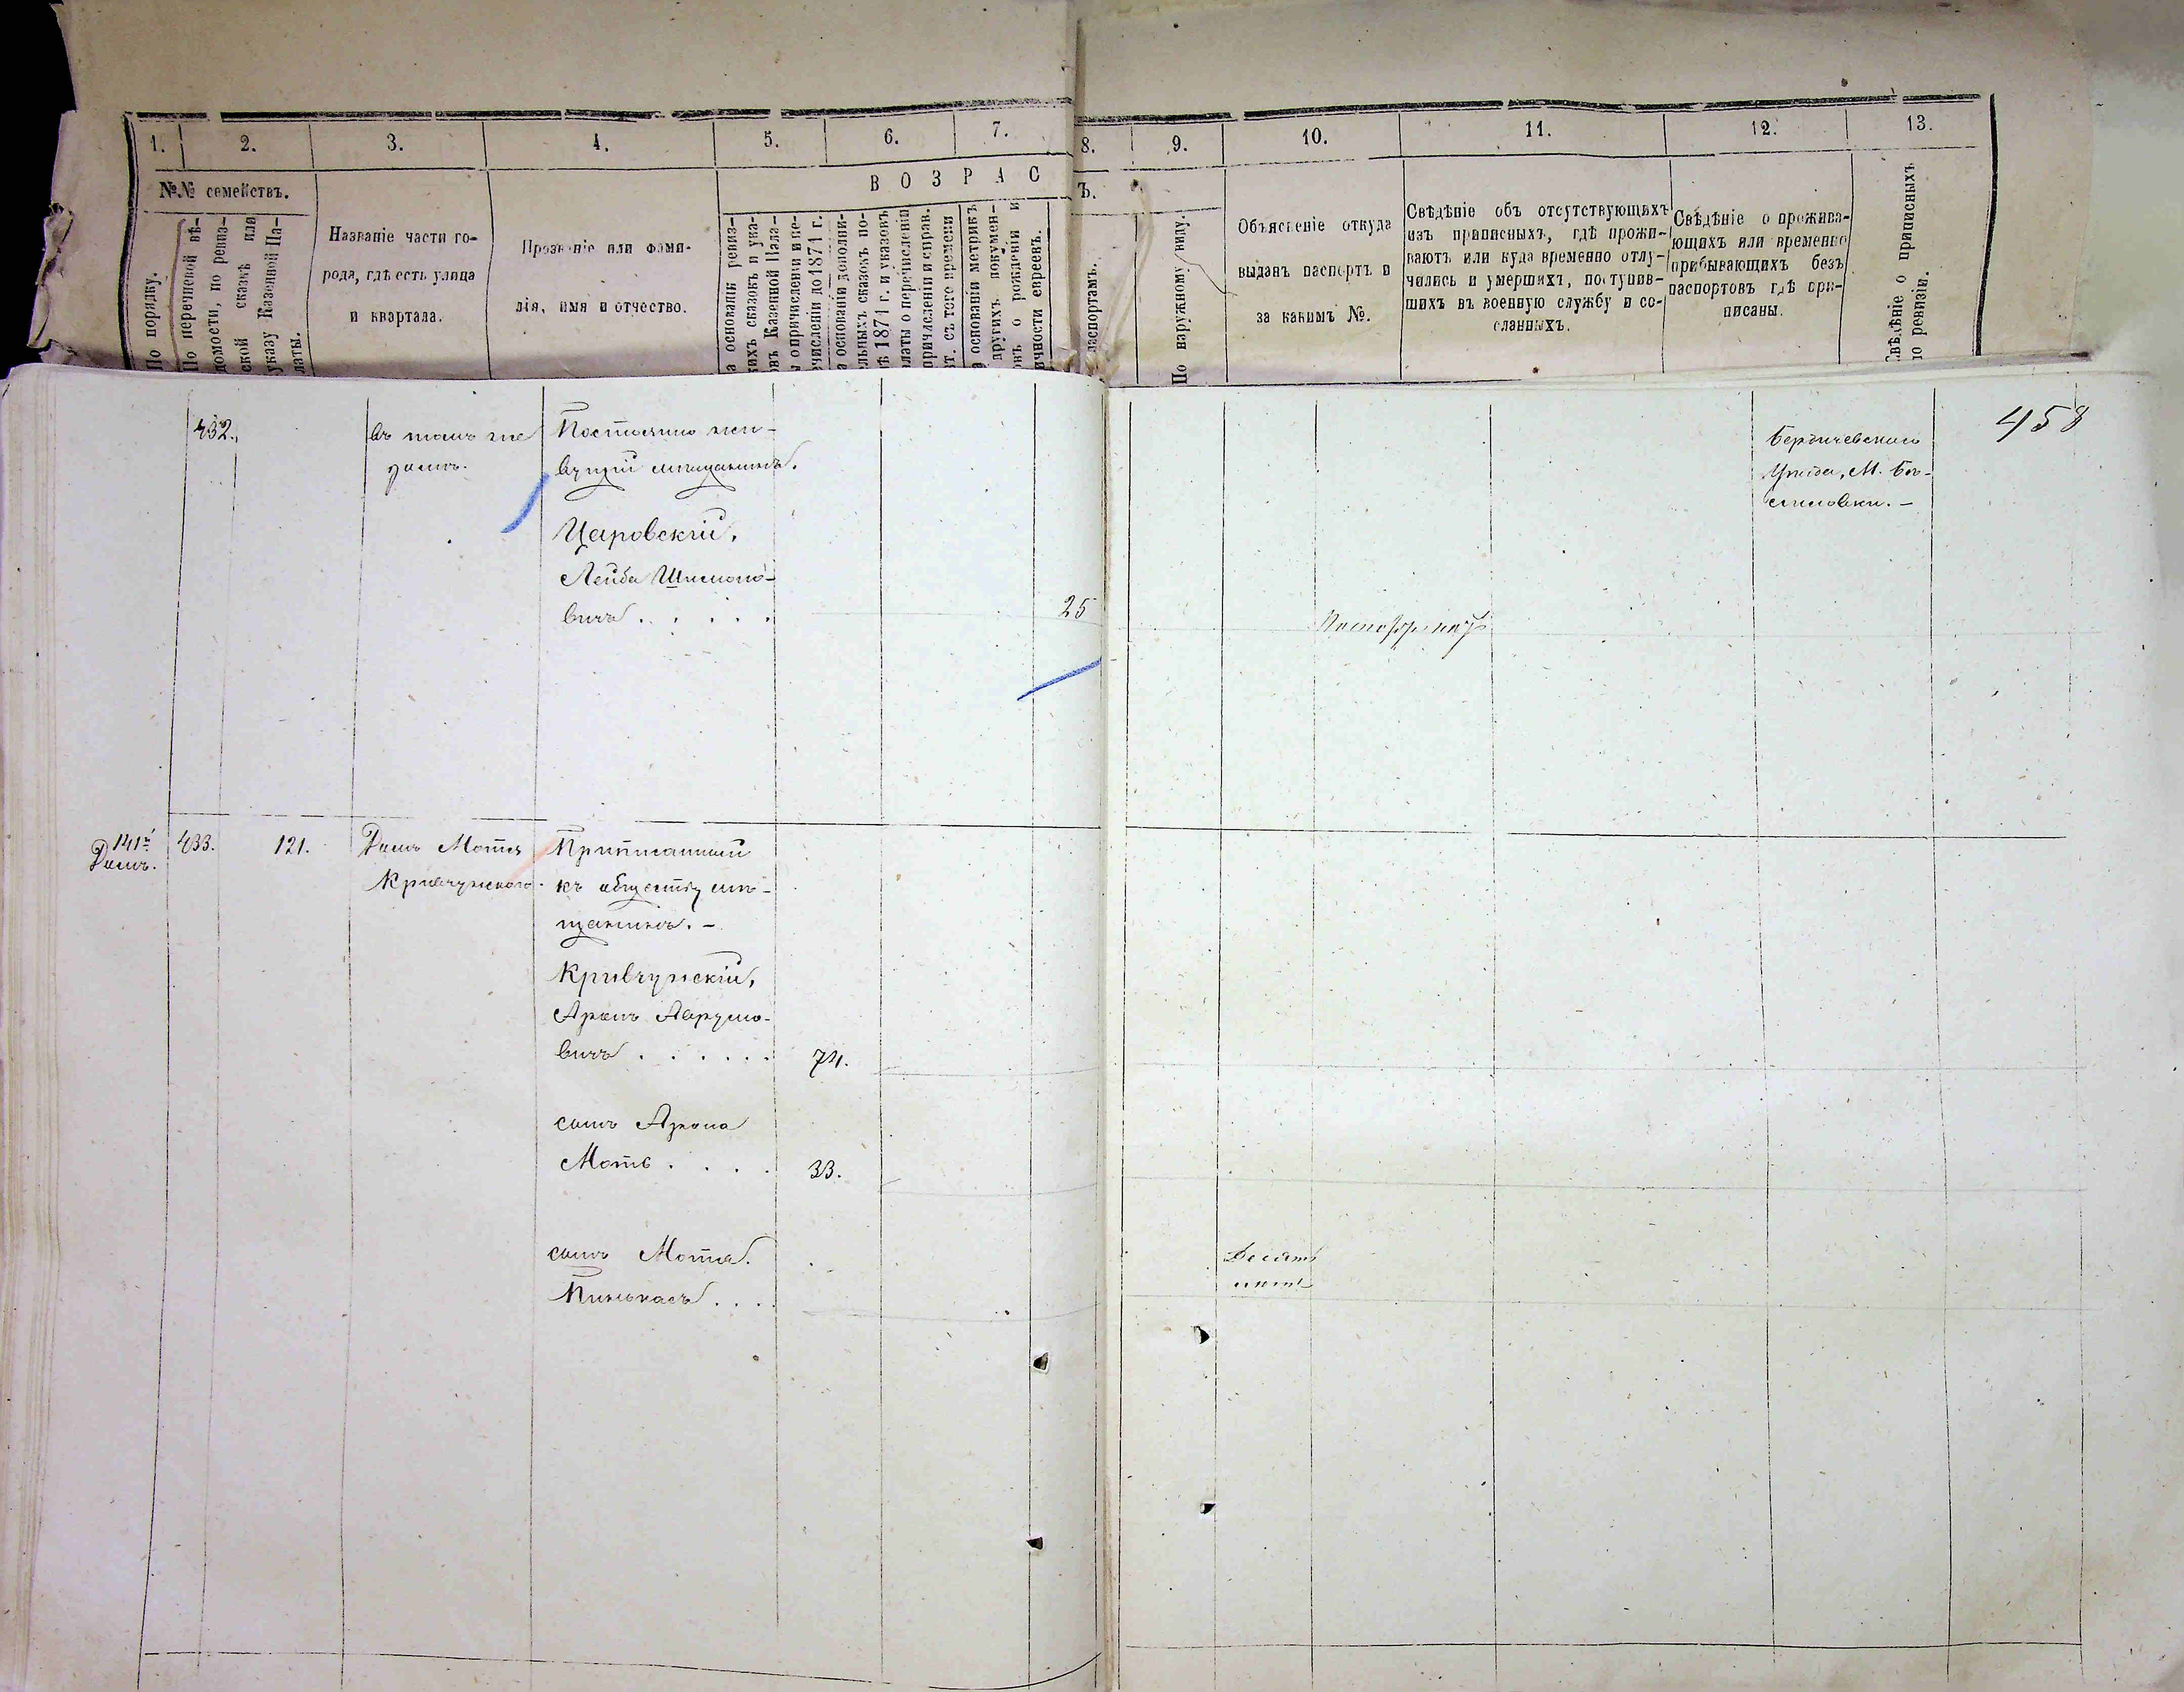 1.
2.
3.
4.
5.
6.
7.
8.
9.
10.
11.
12.
13.
№№ семействъ.
По порядку.
По перечневой вѣ-
домости, по ревиз-
ской сказкѣ или
указу Казенной Па-
латы.
Названіе части го-
рода, гдѣ есть улица
и квартала.
Прозваніе или фами-
лія, имя и отчество.
ВОЗРАС
Ъ.
а основаніи ревиз-
гихъ сказокъ и ука-
овъ Казенной Пала-
ы о причисленіи и пе-
численіи до 1871 г.
а основаніи дополни-
льныхъ сказокъ по-
ѣ 1871 г. и указовъ
латы о перечисленіи
причисленіи и справ.
вт. съ того времени
основаніи метрикъ
другихъ докумен-
овъ о рожденіи и
ичности евреевъ.
паспортамъ.
По наружному виду.
Объясненіе откуда
выданъ паспортъ и
за какимъ №.
Свѣдѣніе объ отсутствующихъ
изъ приписныхъ, гдѣ прожи-
ваютъ или куда временно отлу-
чились и умершихъ, поступив-
шихъ въ военную службу и со-
сланныхъ.
Свѣдѣніе о прожива-
ющихъ или временно
прибывающихъ безъ
паспортовъ гдѣ при-
писаны.
Свѣдѣніе о приписныхъ
по ревизіи.
458
432.
въ томъ же
домѣ.
Постоянно жи-
вущій мѣщанинъ.
Царовскій,
Лейба Шимоно-
вичъ . . . . .
25
Бердичевскаго
Уѣзда, М.
141й
Домъ.
433.
121.
Домъ Мотя
Кривчунскаго.
Приписанный
къ обществу мѣ-
щанинъ. -
Кривчунскій,
Аронъ Аврумо-
вичъ . . . . . .
74.
сынъ Арона
Моть . . . .
33.
сынъ Мотя.
Пинькасъ . . .
Десять
лѣтъ